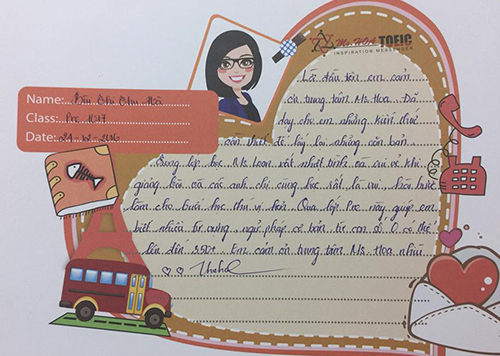 Ms. HOA TOEIC
INSPIRATION MESSENGER
Name:
Class: Pre 1017
Date: 24 - 12 - 2016
Lời đầu tiên em cảm
ơn trung tâm Ms Hoa. Đã
dạy cho em những kiến thức
cần thiết để lấy lại những căn bản.
Cùng lớp học Ms Loan rất nhiệt tình và vui vẻ khi
giảng bài và các anh chị cùng học rất là vui
làm cho buổi học thú vị hơn. Qua lớp Pre này giúp em
biết nhiều từ vựng, ngữ pháp cơ bản từ con số 0 có thể
lên đến 350+. Em cảm ơn trung tâm Ms Hoa nhiều.